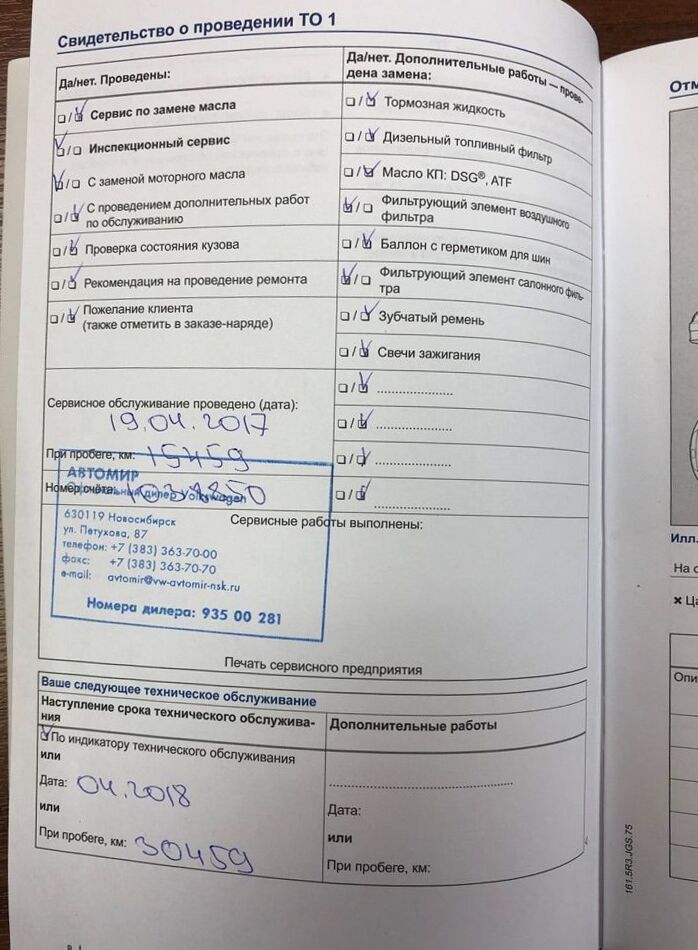 Свидетельство о проведении ТО 1
Да/нет. Проведены:
❑/❑ Сервис по замене масла
❑/❑ Инспекционный сервис
❑/❑ С заменой моторного масла
❑/❑ С проведением дополнительных работ
по обслуживанию
❑/❑ Проверка состояния кузова
❑/❑ Рекомендация на проведение ремонта
❑/❑ Пожелание клиента
(также отметить в заказе-наряде)
Да/нет. Дополнительные работы — прове-
дена замена:
❑/❑ Тормозная жидкость
❑/❑ Дизельный топливный фильтр
❑/❑ Масло КП: DSG®, ATF
❑/❑ Фильтрующий элемент воздушного
фильтра
❑/❑ Баллон с герметиком для шин
❑/❑ Фильтрующий элемент салонного филь-
тра
❑/❑ Зубчатый ремень
❑/❑ Свечи зажигания
❑/❑ ......................
❑/❑ ......................
❑/❑ ......................
❑/❑ ......................
Сервисное обслуживание проведено (дата):
19.04.2017
При пробеге, км: 15459
Номер счёта:
АВТОМИР
Официальный дилер Volkswagen
630119 Новосибирск
ул. Петухова, 87
телефон: +7 (383) 363-70-00
факс: +7 (383) 363-70-70
e-mail: avtomir@vw-avtomir-nsk.ru
Номера дилера: 935 00 281
Сервисные работы выполнены:
Печать сервисного предприятия
Ваше следующее техническое обслуживание
Наступление срока технического обслужива-
ния
❑ По индикатору технического обслуживания
или
Дата: 04.2018
или
При пробеге, км: 30459
Дополнительные работы
......................................................
Дата:
или
При пробеге, км:
Отм
Илл.
На с
✖ Ца
Опи
161.5R3.JGS.75